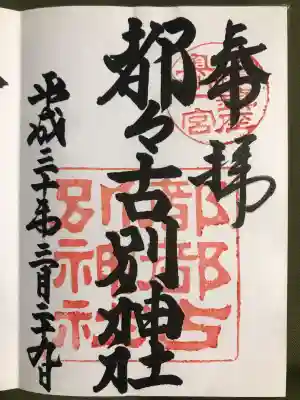 奉拝
都々古別神社
平成三十年三月二十九日
都都古
別神社
奥州一宮